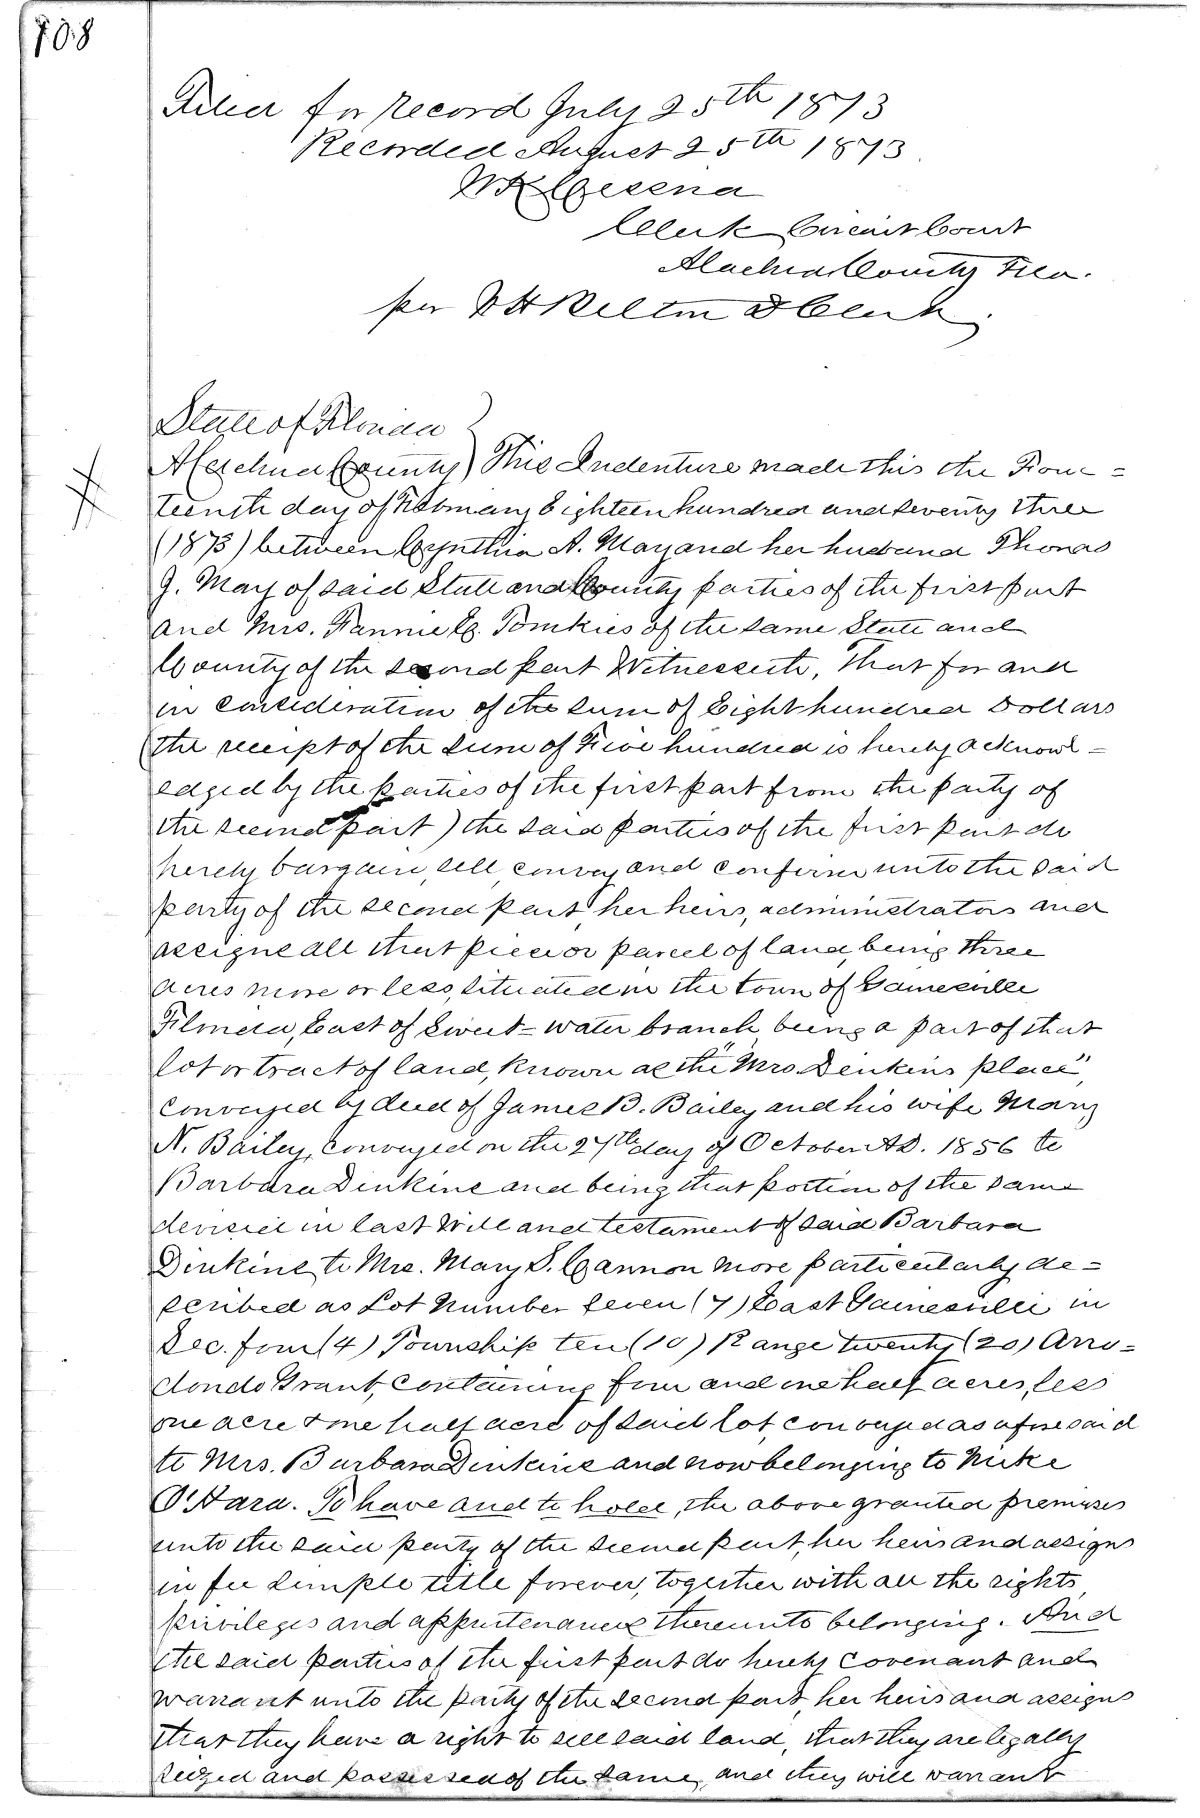 708
Filed for record July 25th 1873
Recorded August 25th 1873.
Clerk Circuit Court
Alachua County Fla.
per D Clerk.
State of Florida }
Alachua County) This Indenture made this the Four=
teenth day of February Eighteen hundred and seventy three
(1873) between Cynthia A. May and her husband Thomas
J. May of said State and County parties of the first part
and Mrs. Fannie C. Tomkies of the same State and
County of the second part Witnesseth, That for and
in consideration of the sum of Eight hundred Dollars
(the receipt of the sum of Five hundred is hereby acknowl=
edged by the parties of the first part from the party of
the second part) the said parties of the first part do
hereby bargain, sell, convey and confirm unto the said
party of the second part, her heirs, administrators and
assigns all that piece or parcel of land, being three
acres more or less, situated in the town of Gainesville
Florida, East of Sweet=water branch, being a part of that
lot or tract of land, known as the "Mrs. Dinkins place",
conveyed by deed of James B. Bailey and his wife Mary
N. Bailey, conveyed on the 27th day of October A.D. 1856 to
Barbara Dinkins and being that portion of the same
devised in last Will and testament of said Barbara
Dinkins to Mrs. Mary S. Cannon more particularly de=
scribed as Lot Number Seven (7) East Gainesville in
Sec. four (4) Township ten (10) Range twenty (20) Arre=
dondo Grant, containing four and one half acres, less
one acre & one half acre of said lot, conveyed as aforesaid
to Mrs. Barbara Dinkins and now belonging to Mike
O'Hara. To have and to hold, the above granted premises
unto the said party of the second part, her heirs and assigns
in fee simple title forever, together with all the rights,
privileges and appurtenances thereunto belonging. And
the said parties of the first part do hereby covenant and
warrant unto the party of the second part, her heirs and assigns
that they have a right to sell said land, that they are legally
seized and possessed of the same, and they will warrant